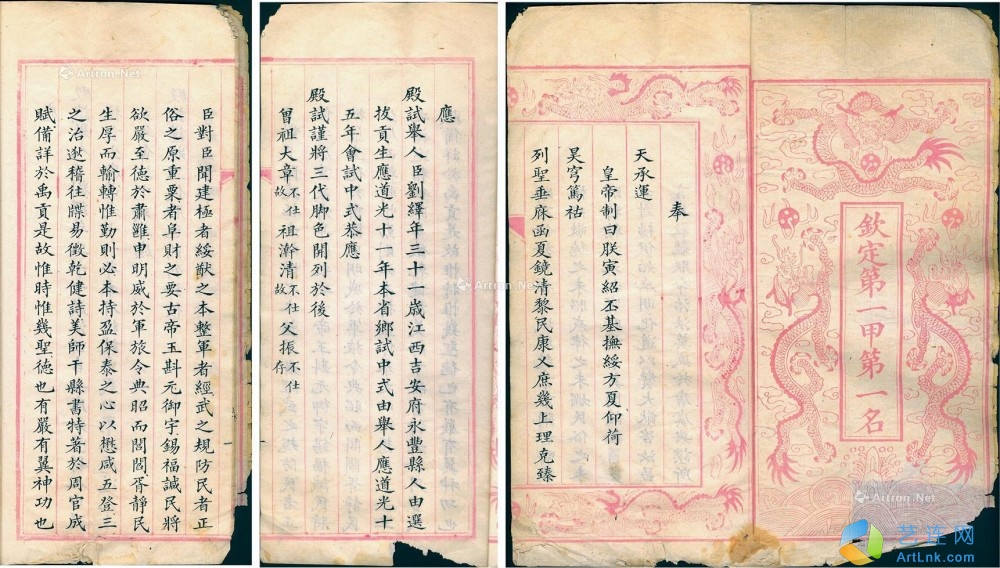 欽定第一甲第一名
奉
天承運
皇帝制曰朕寅紹丕基撫綏方夏仰荷
昊穹篤祜
列聖垂庥函夏鏡清黎民康乂庶幾上理克臻
應
殿試舉人臣劉繹年三十一歲江西吉安府永豐縣人由選
拔貢生應道光十一年本省鄉試中式由舉人應道光十
五年會試中式恭應
殿試謹將三代脚色開列於後
曾祖大章不仕故 祖瀚清不仕故 父振不仕存
臣對臣聞建極者綏猷之本整軍者經武之規防民者正
俗之原重粟者阜財之要古帝王斟元御宇錫福諴民將
欲嚴至德於肅雝申明威於軍旅令典昭而閭閻胥靜民
生厚而輸轉惟勤則必本持盈保泰之心以懋咸五登三
之治逖稽往牒易徵乾健詩美師干縣書特著於周官成
賦備詳於禹貢是故惟時惟幾聖德也有嚴有翼神功也
Artron.Net
Artron.Net
Artron.Net
Artron.Net
艺连网
ArtLnk.com